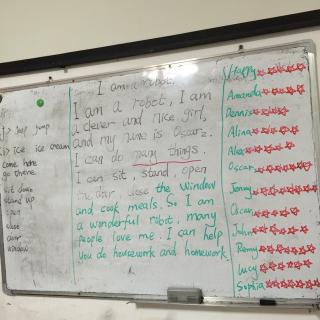 I am a robot.
I am a robot, I am
a clever and nice girl,
and my name is Oscar.
I can do many things.
I can sit, stand, open
the door, close the window
and cook meals. So I am
a wonderful robot, many
people love me. I can help
you do housework and homework.
jump
ice ice cream
come here
go there
sit down
stand up
open
close
door
window
Happy
Amanda
Dennis
Alina
Alex
Oscar
Jenny
Oscar
John
Remy
Lucy
Sophia